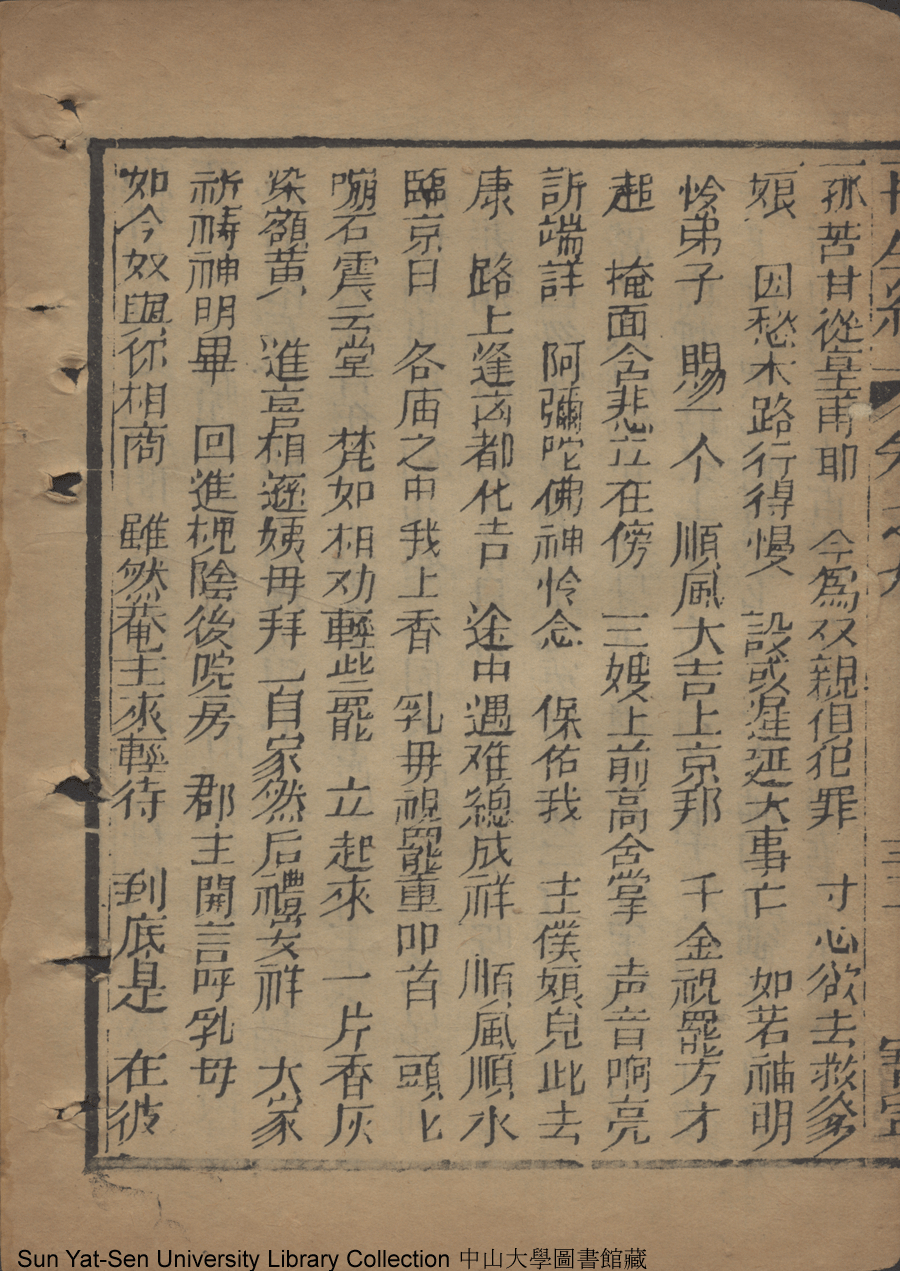 孤苦甘從皇甫耶　今爲双親但犯罪　寸心欲去救爹
娘　因愁木路行得慢　設或遲延大事亡　如若神明
怜弟子　賜一个　順風大吉上京邦　千金祝罷方才
起　掩面含悲立在傍　三嫂上前高合掌　声音响亮
訴端詳　阿彌陀佛神怜念　保佑我　主僕娘兒此去
康　路上逢凶都化吉　途中遇难總成祥　順風順水
臨京日　各庙之中我上香　乳母祝罷重叩首　頭匕
嘣石震云堂　梵如相劝輕些罷　立起來　一片香灰
染額黄　進言相遜姨母拜　自家然后禮安祥　大家
祈禱神明畢　回進槐陰後院房　郡主開言呼乳母
如今奴與你相商　雖然菴主來輕待　到底是　在彼
Sun Yat-Sen University Library Collection 中山大學圖書館藏